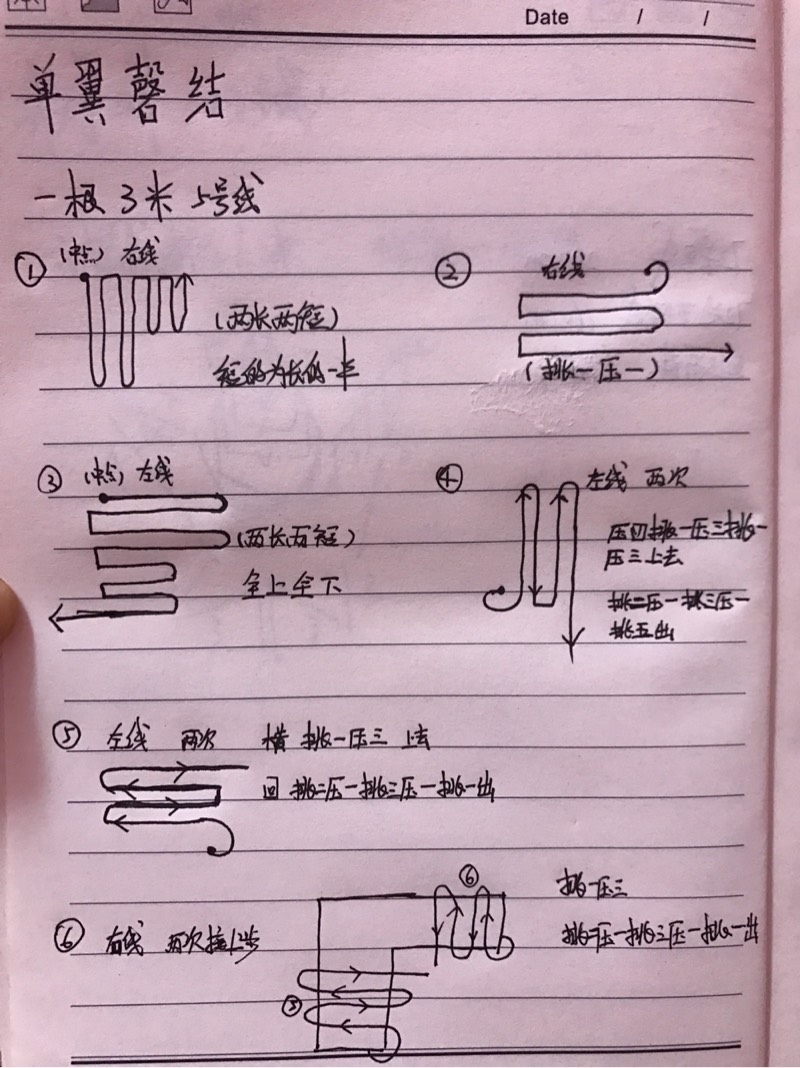 Date / /
单翼磬结
一根3米 5号线
① (中点) 右线
(两长两短)
短的为长的一半
② 右线
(挑一压一)
③ (中点) 左线
(两长两短)
全上全下
④ 左线 两次
压四挑一压三挑一
压三上去
挑二压一挑三压一
挑五出
⑤ 左线 两次 横 挑一压三 上去
回 挑二压一挑三压一挑一出
⑥ 右线 两次 接上步
⑥
⑤
挑一压三
挑二压一挑三压一挑一出